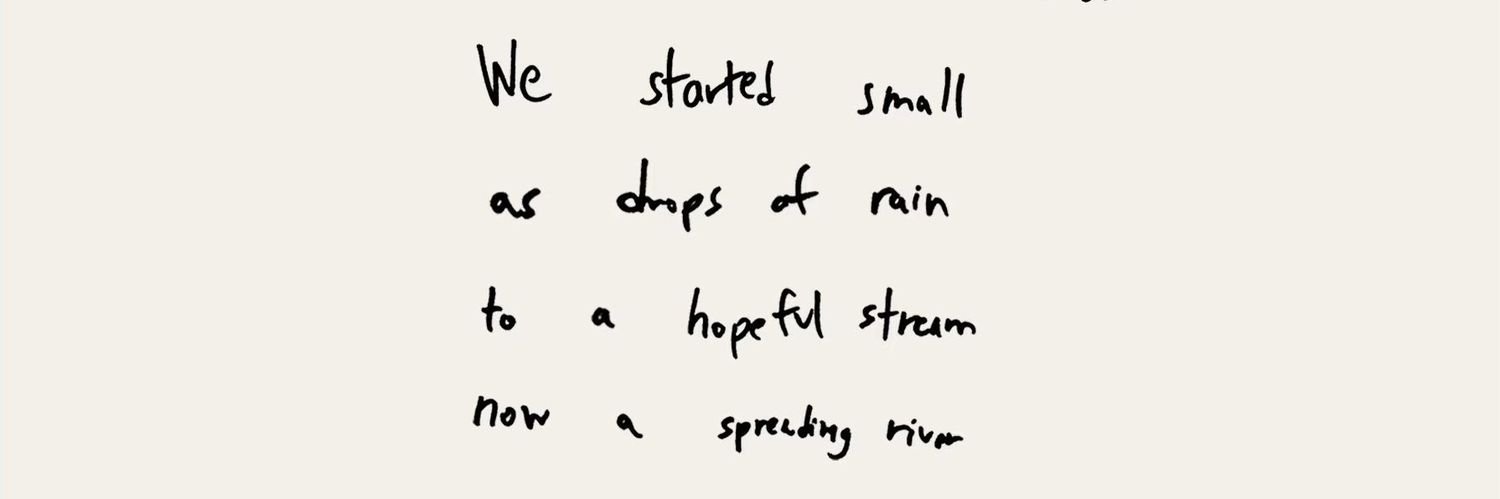 We started small
as drops of rain
to a hopeful stream
now a spreading river